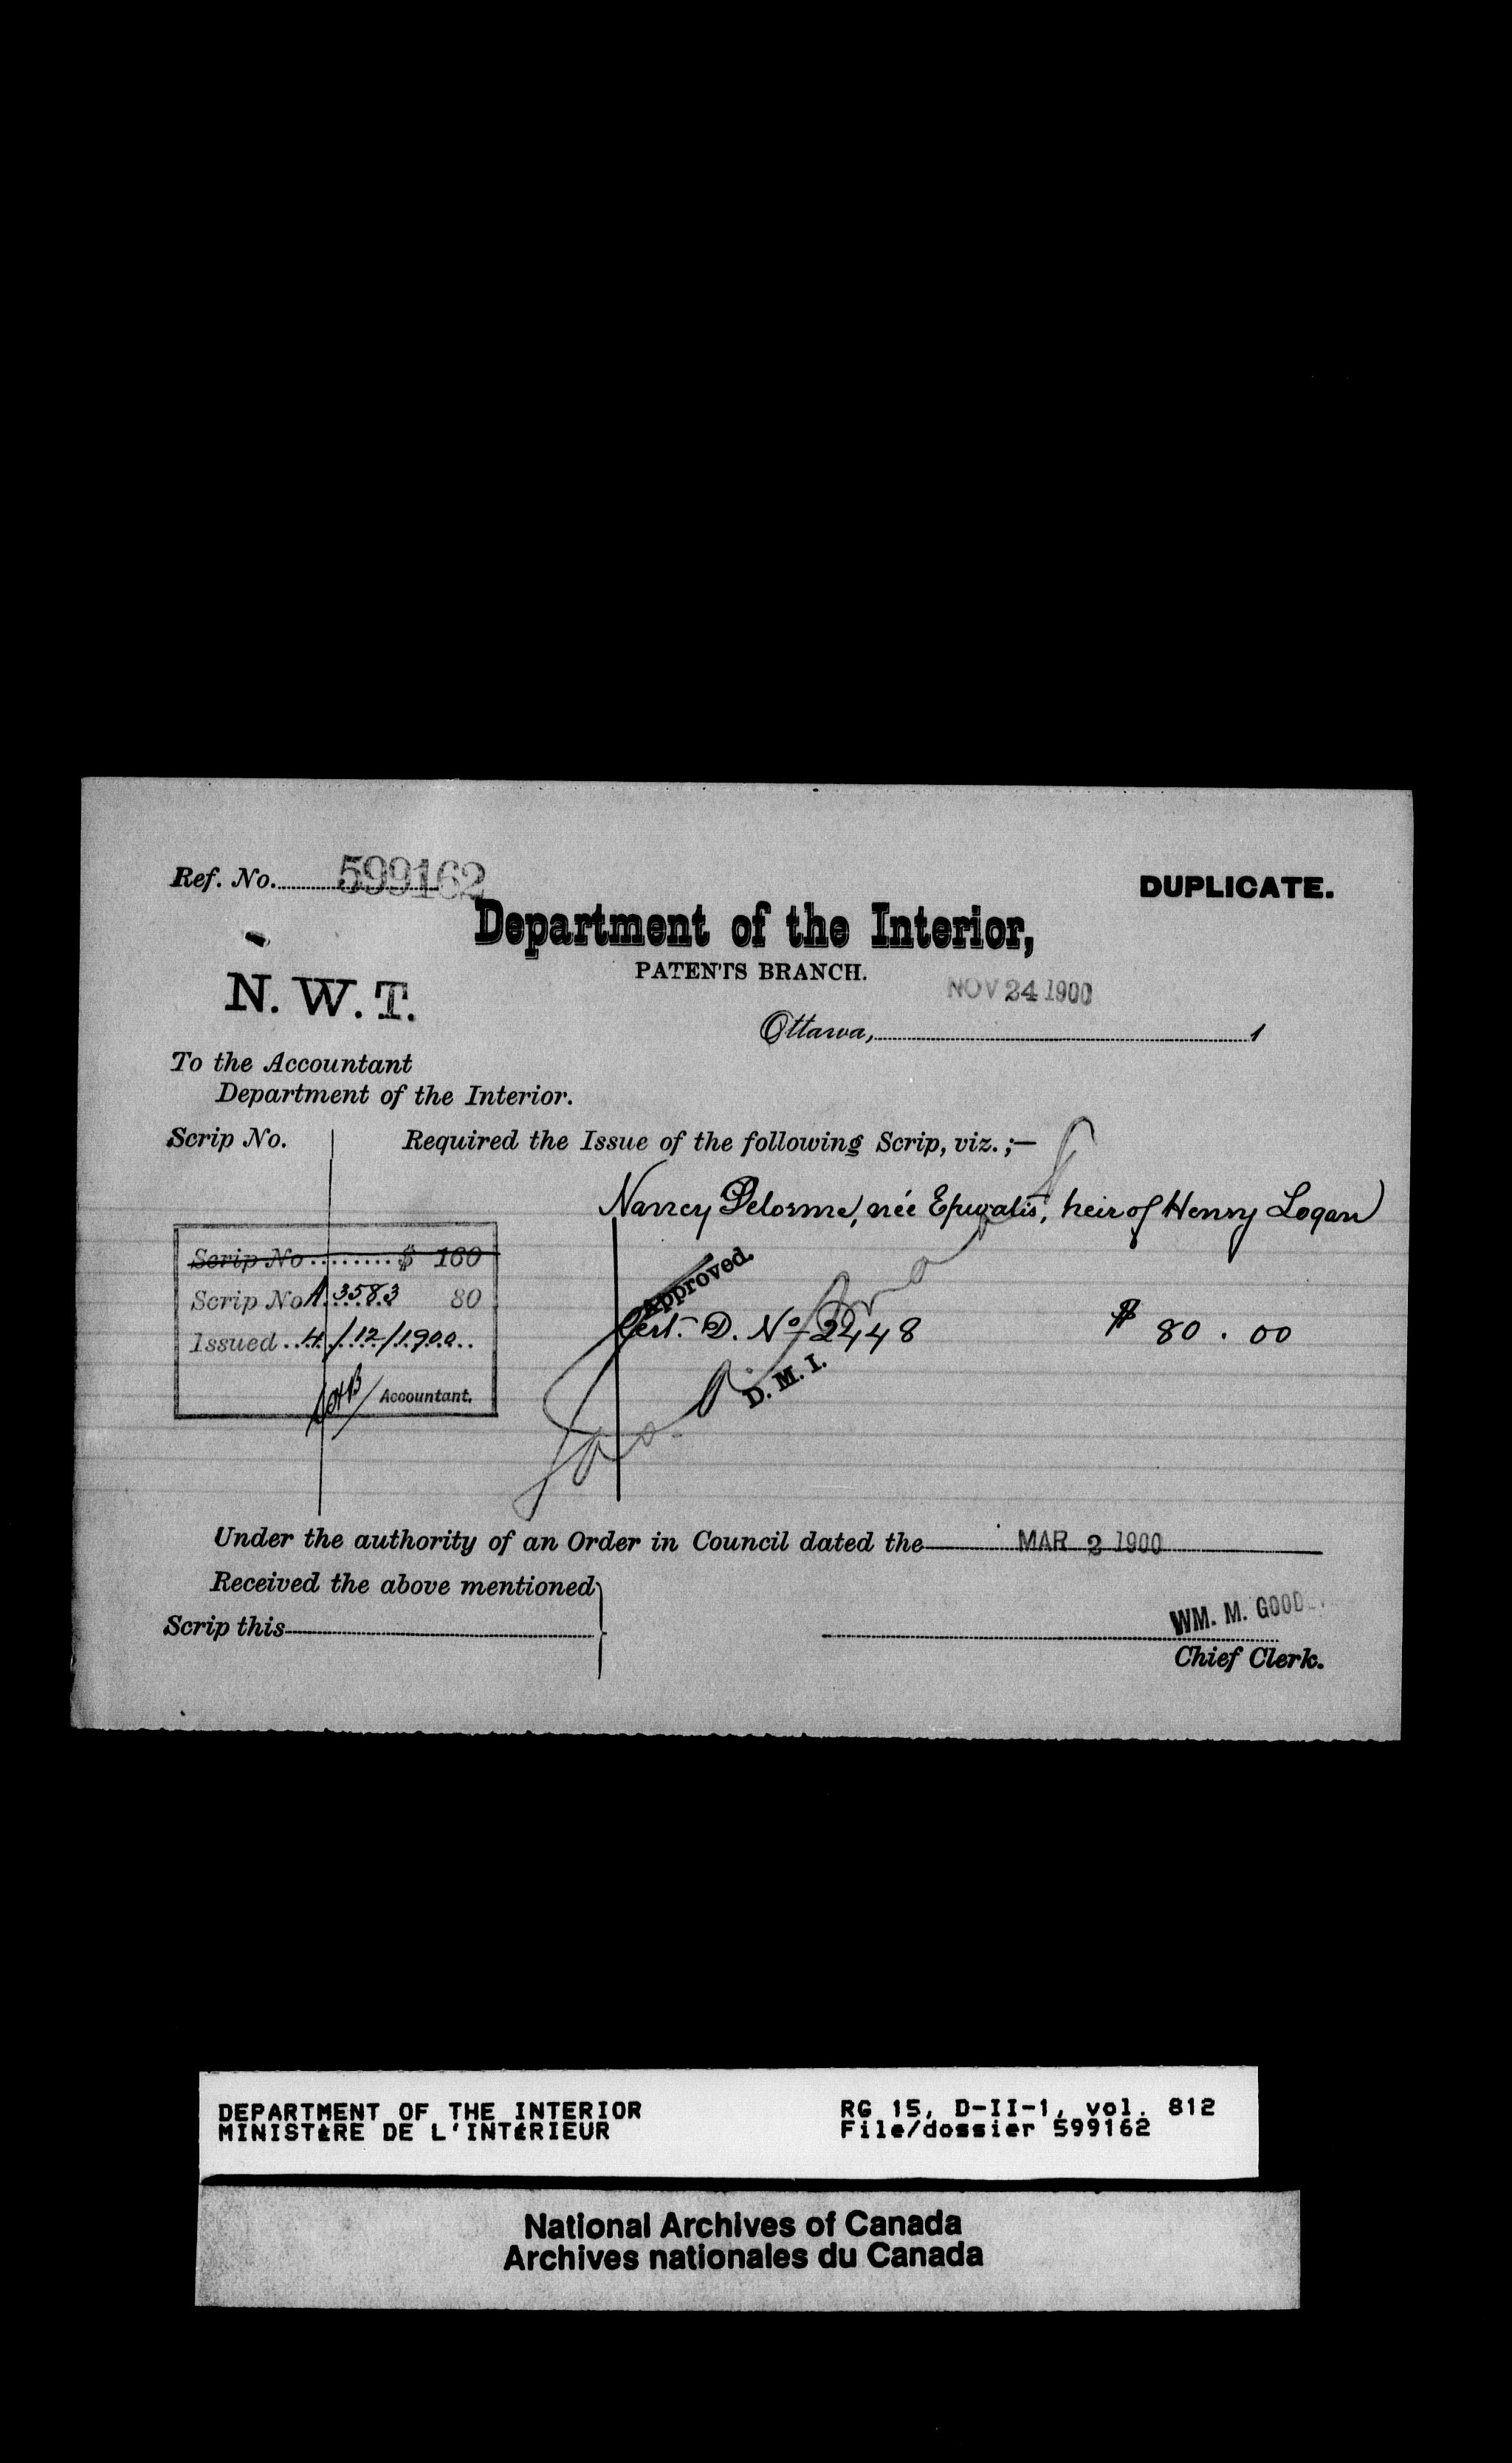 Ref. No. 599162
DUPLICATE.
Department of the Interior,
PATENTS BRANCH.
N. W. T.
NOV 24 1900
Ottawa, 1
To the Accountant
Department of the Interior.
Scrip No.
Required the Issue of the following Scrip, viz. ;—
Nancy Delorme, née Epwatis, heir of Henry Logan
Scrip No ........ $ 160
Scrip No A. 3583 80
Issued .. 4/12/1900 ..
Accountant.
Approved.
Cert. D. No 2448 $ 80.00
D. M. I.
Under the authority of an Order in Council dated the MAR 2 1900
Received the above mentioned
Scrip this
WM. M. GOOD
Chief Clerk.
DEPARTMENT OF THE INTERIOR
MINISTÈRE DE L'INTÉRIEUR
RG 15, D-II-1, vol. 812
File/dossier 599162
National Archives of Canada
Archives nationales du Canada